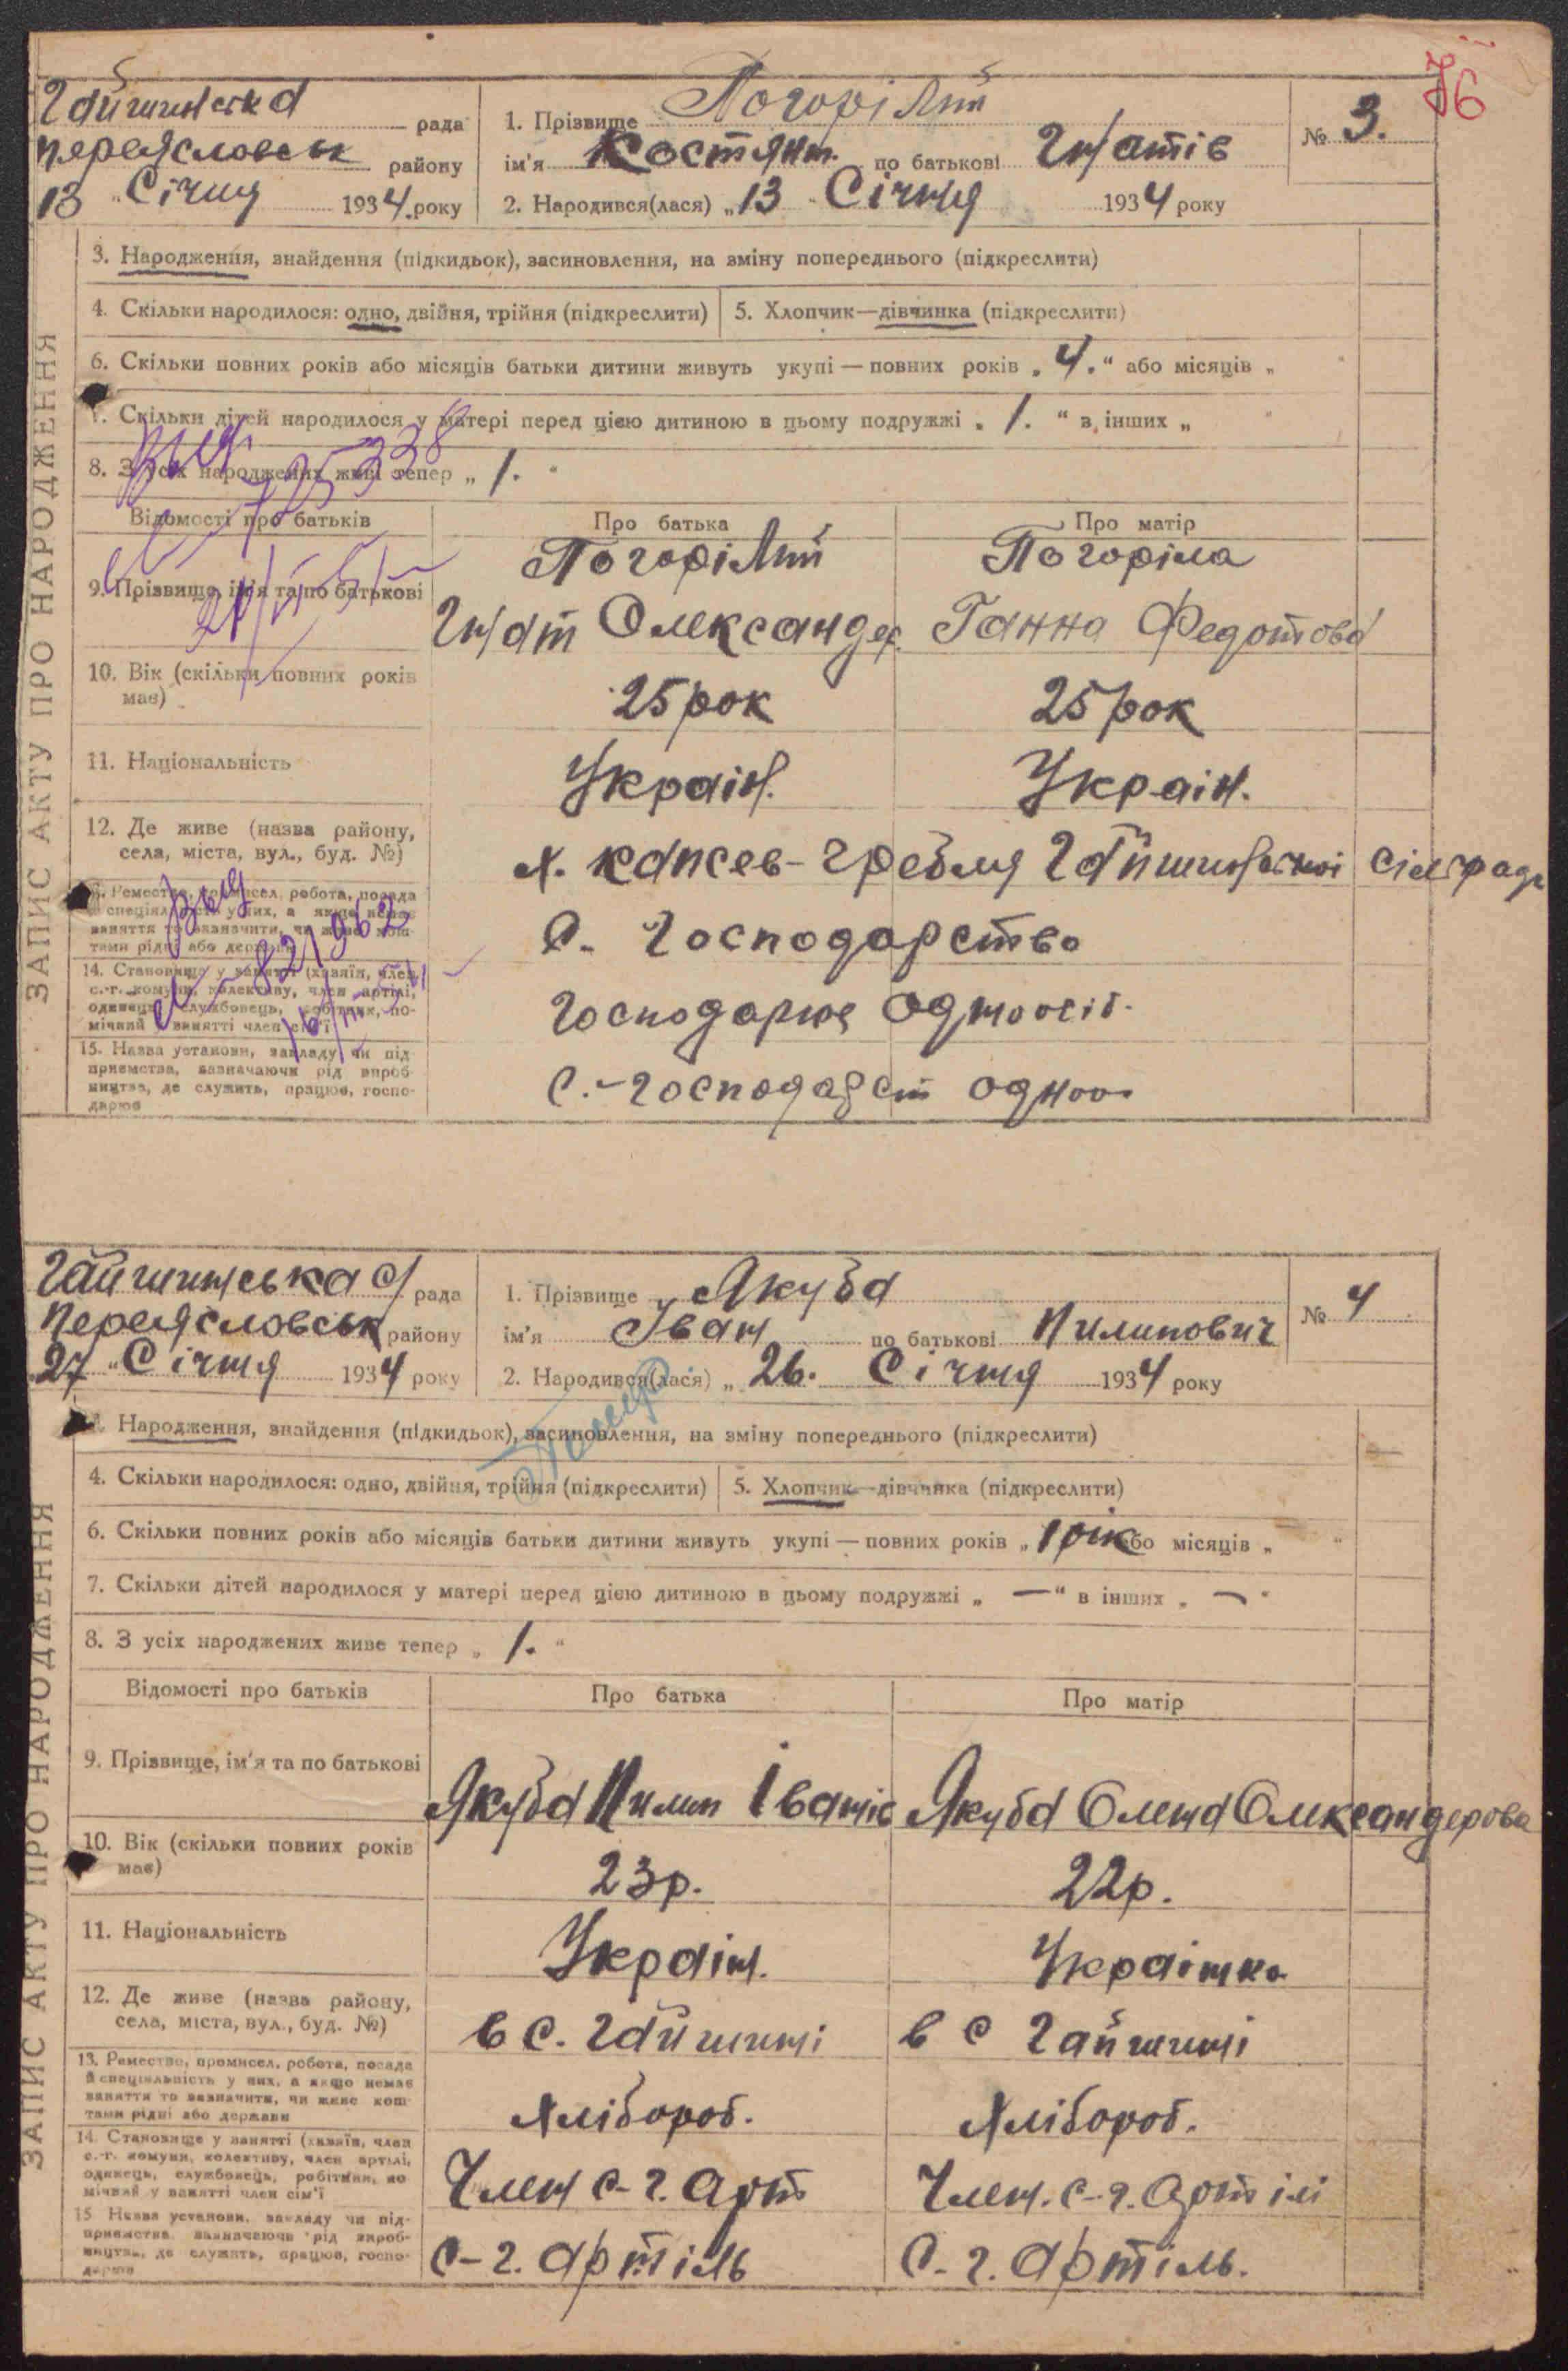 76
Гайшинська рада
Переясловськ району
13 „ Січня 1934 року
1. Прізвище Погорілий
ім'я Костянт. по батькові Ігнатів
№ 3.
2. Народився(лася) „13 Січня 1934 року
ЗАПИС АКТУ ПРО НАРОДЖЕННЯ
3. Народження, знайдення (підкидьок), засиновлення, на зміну попереднього (підкреслити)
4. Скільки народилося: одно, двійня, трійня (підкреслити)
5. Хлопчик—дівчинка (підкреслити)
6. Скільки повних років або місяців батьки дитини живуть укупі — повних років „4.“ або місяців „ “
7. Скільки дітей народилося у матері перед цією дитиною в цьому подружжі „ 1. “ в інших „ “
8. З усіх народжених живі тепер „ 1. “
Відомості про батьків
Про батька
Про матір
9. Прізвище, ім'я та по батькові
Погорілий
Ігнат Олександер.
Погоріла
Ганна Федотова
10. Вік (скільки повних років має)
25 рок
25 рок
11. Національність
Україн.
Україн.
12. Де живе (назва району,
села, міста, вул., буд. №)
х. Гребля Гайшинської сілради
13. Ремество, промисел, робота, посада
й спеціяльність у них, а якщо немає
заняття то зазначити, чи живе кош-
тами рідні або держави
С. Господарство
14. Становище у занятті (хазяїн, член
с.-г. комуни, колективу, член артілі,
одинець, службовець, робітник, по-
мічний у занятті член сім'ї
Господарює Одноосіб.
15. Назва установи, закладу чи під-
приємства, зазначаючи рід вироб-
ництва, де служить, працює, госпо-
дарює
С.-господарст одноо
Гайшинська с/рада
Переясловськ району
27 „ Січня 1934 року
1. Прізвище Якуба
ім'я Іван по батькові Пилипович
№ 4
2. Народився(лася) „ 26. Січня 1934 року
ЗАПИС АКТУ ПРО НАРОДЖЕННЯ
3. Народження, знайдення (підкидьок), засиновлення, на зміну попереднього (підкреслити)
4. Скільки народилося: одно, двійня, трійня (підкреслити)
5. Хлопчик—дівчинка (підкреслити)
6. Скільки повних років або місяців батьки дитини живуть укупі — повних років „ 1 рік або місяців „ “
7. Скільки дітей народилося у матері перед цією дитиною в цьому подружжі „ — “ в інших „ — “
8. З усіх народжених живе тепер „ 1. “
Відомості про батьків
Про батька
Про матір
9. Прізвище, ім'я та по батькові
Якуба Пилип Іванів
Якуба Олена Олександерова
10. Вік (скільки повних років має)
23р.
22р.
11. Національність
Україн.
Українка
12. Де живе (назва району,
села, міста, вул., буд. №)
в с. Гайшині
в с Гайшині
13. Ремество, промисел, робота, посада
й спеціяльність у них, а якщо немає
заняття то зазначити, чи живе кош-
тами рідні або держави
Хлібороб.
Хлібороб.
14. Становище у занятті (хазяїн, член
с.-г. комуни, колективу, член артілі,
одинець, службовець, робітник, по-
мічний у занятті член сім'ї
Член с-г. Арт
Член. с-г. Артілі
15. Назва установи, закладу чи під-
приємства, зазначаючи рід вироб-
ництва, де служить, працює, госпо-
дарює
С-г. Артіль
С.-г. Артіль.